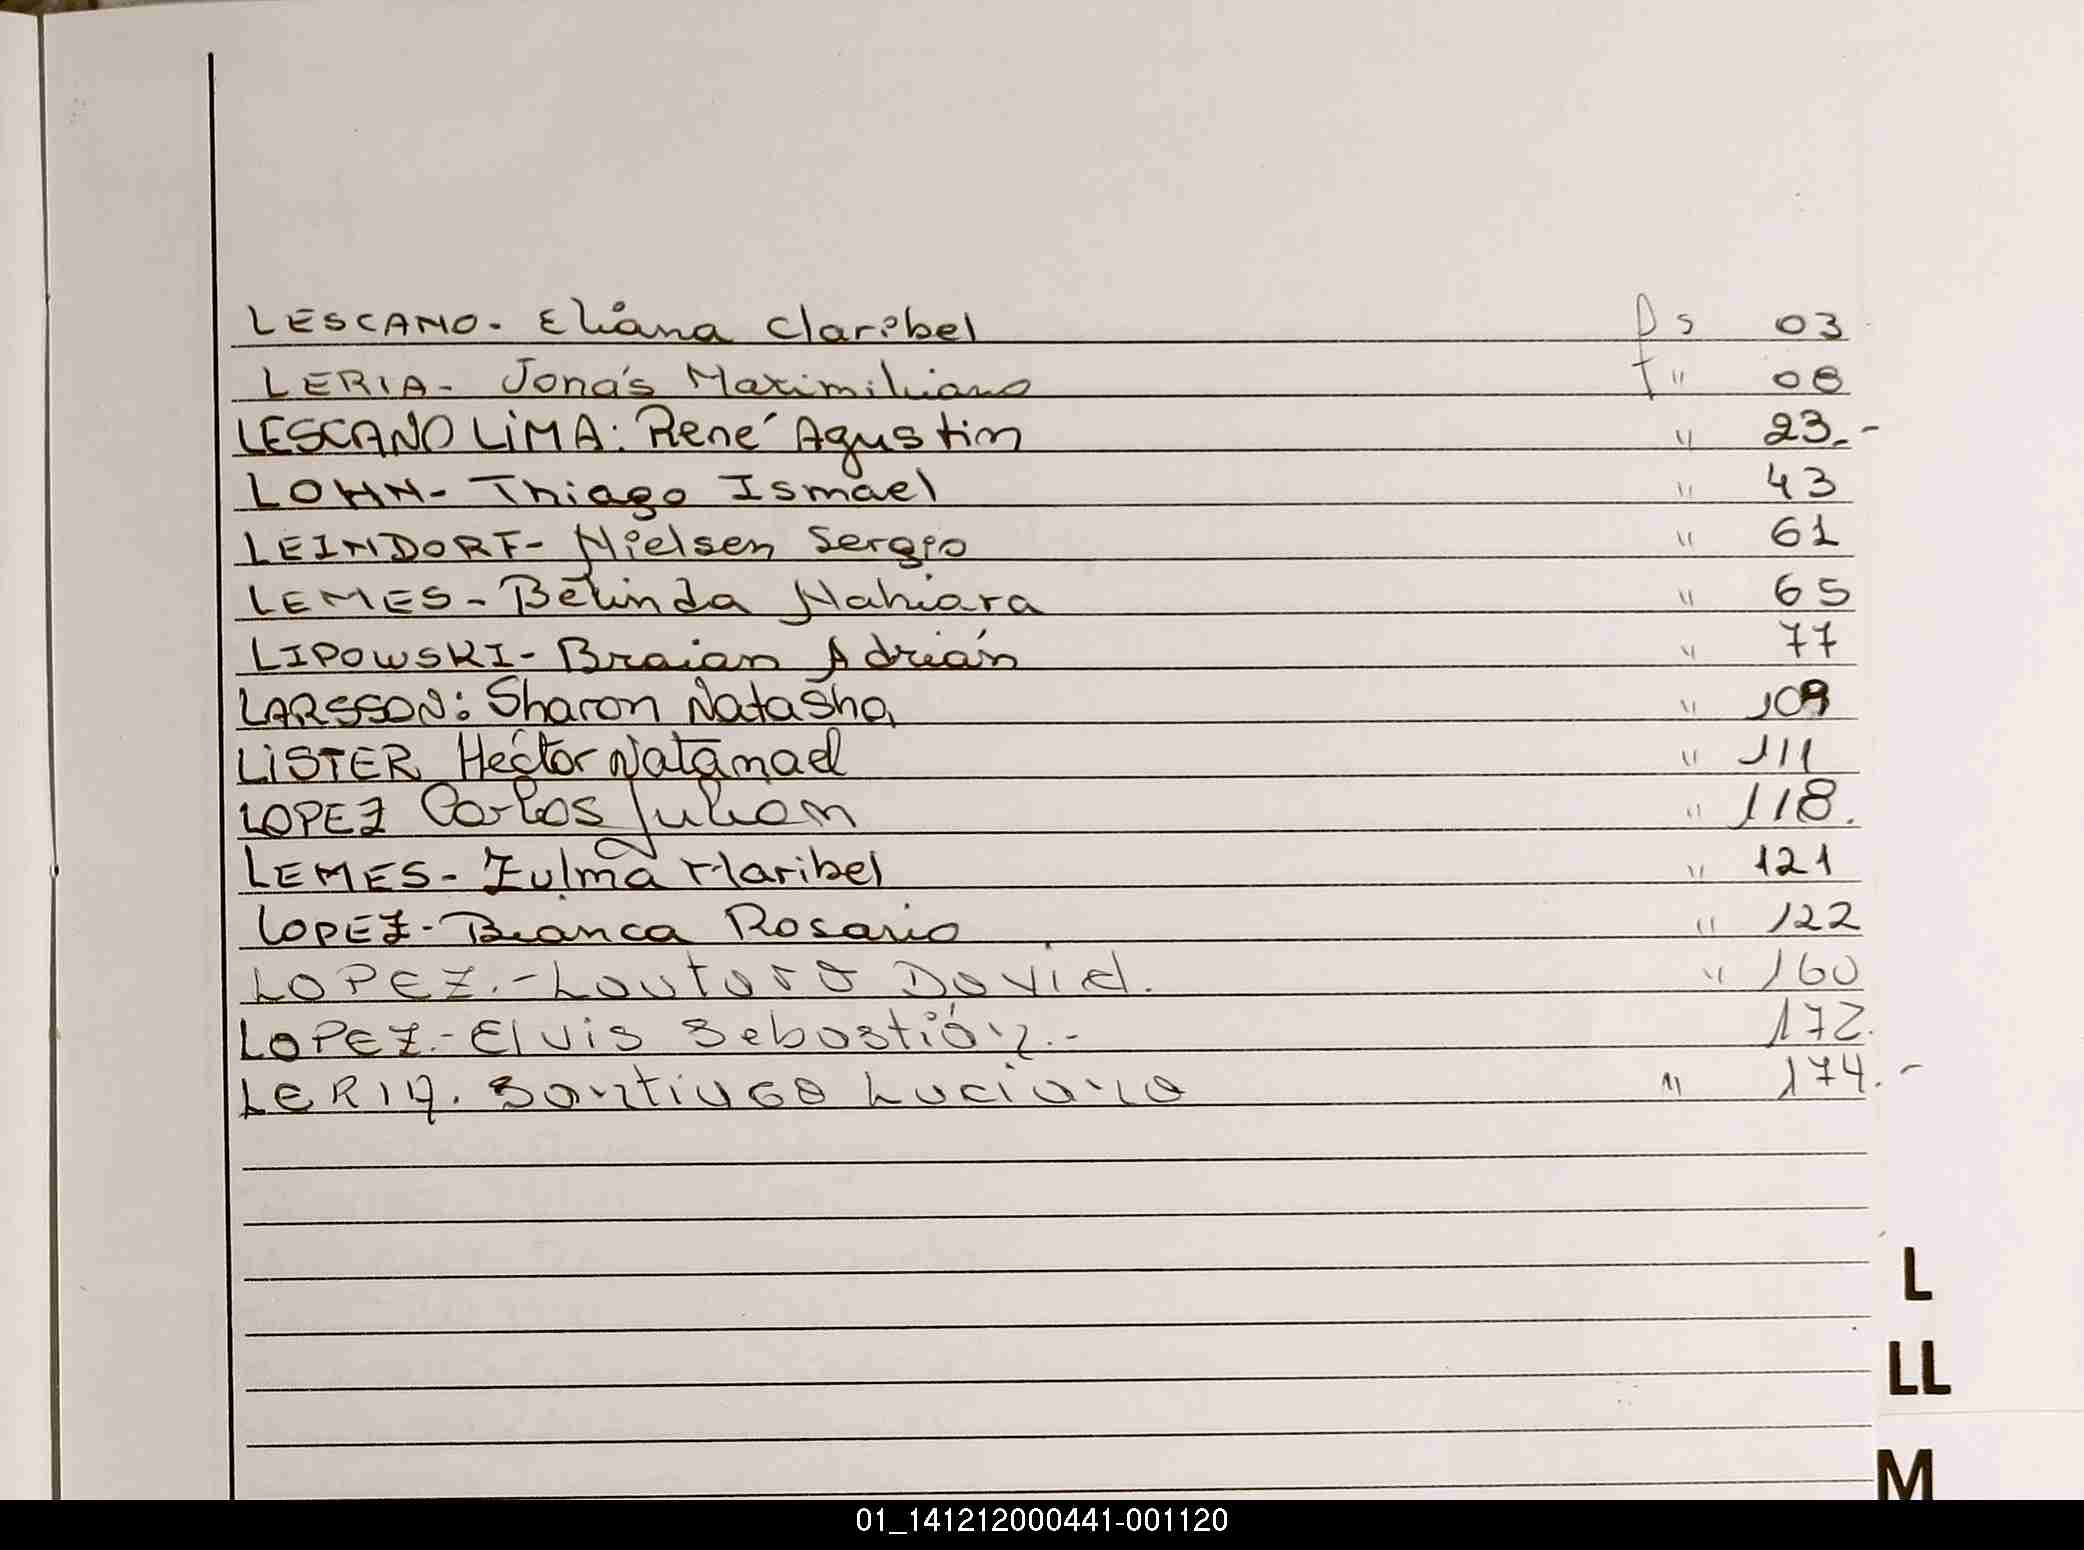 LESCANO- Eliana Claribel Ps 03
LERIA- Jonás Maximiliano " 08
LESCANO LiMA: René Agustin " 23.-
LOHN- Thiago Ismael " 43
LEINDORF- Nielsen Sergio " 61
LEMES- Belinda Nahiara " 65
LIPOWSKI- Braian Adrián " 77
LARSSON: Sharon Natasha " 109
LiSTER Héctor Natanael " 111
LOPEZ Carlos Julian " 118.
LEMES- Zulma Maribel " 121
LOPEZ- Bianca Rosario " 122
LOPEZ.- Lautaro David. " 160
LOPEZ.- Elvis Sebastián.- 172.
LERIA. Santiago Luciano " 174.-
L
LL
M
01_141212000441-001120